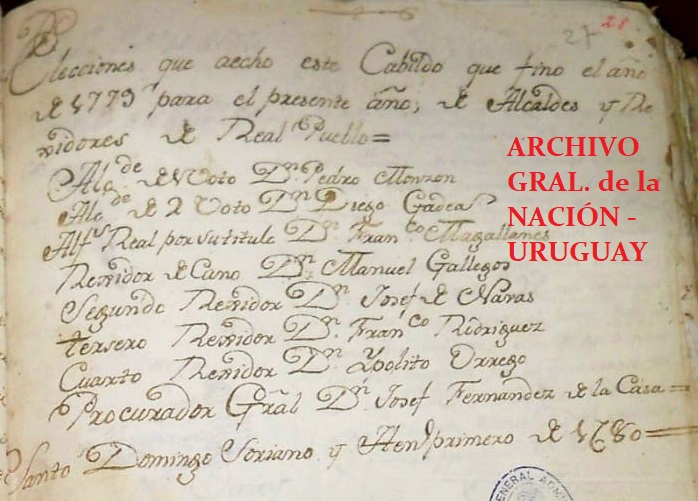 27 28
Elecciones que aecho este Cabildo que fino el año
de 1779 para el presente año, de Alcaldes y Re
xidores de Real Puello=
Alc.de de 1 Voto Dn. Pedro Monzon
Alc.de de 2 Voto Dn Diego Gadea
Alfs Real por su titulo Dn. Franco Magallanes
Rexidor de Cano Dn. Manuel Gallegos
Segundo Rexidor Dn. Josef de Navas
tersero Rexidor Dn. Franco Rodriguez
Cuarto Rexidor Dn. Ypolito Urrego
Procurador Gral Dn. Josef Fernandez de la Casa=
Santo Domingo Soriano y Heno primero de 1780=
ARCHIVO
GRAL. de la
NACIÓN -
URUGUAY
GENERAL ADMI